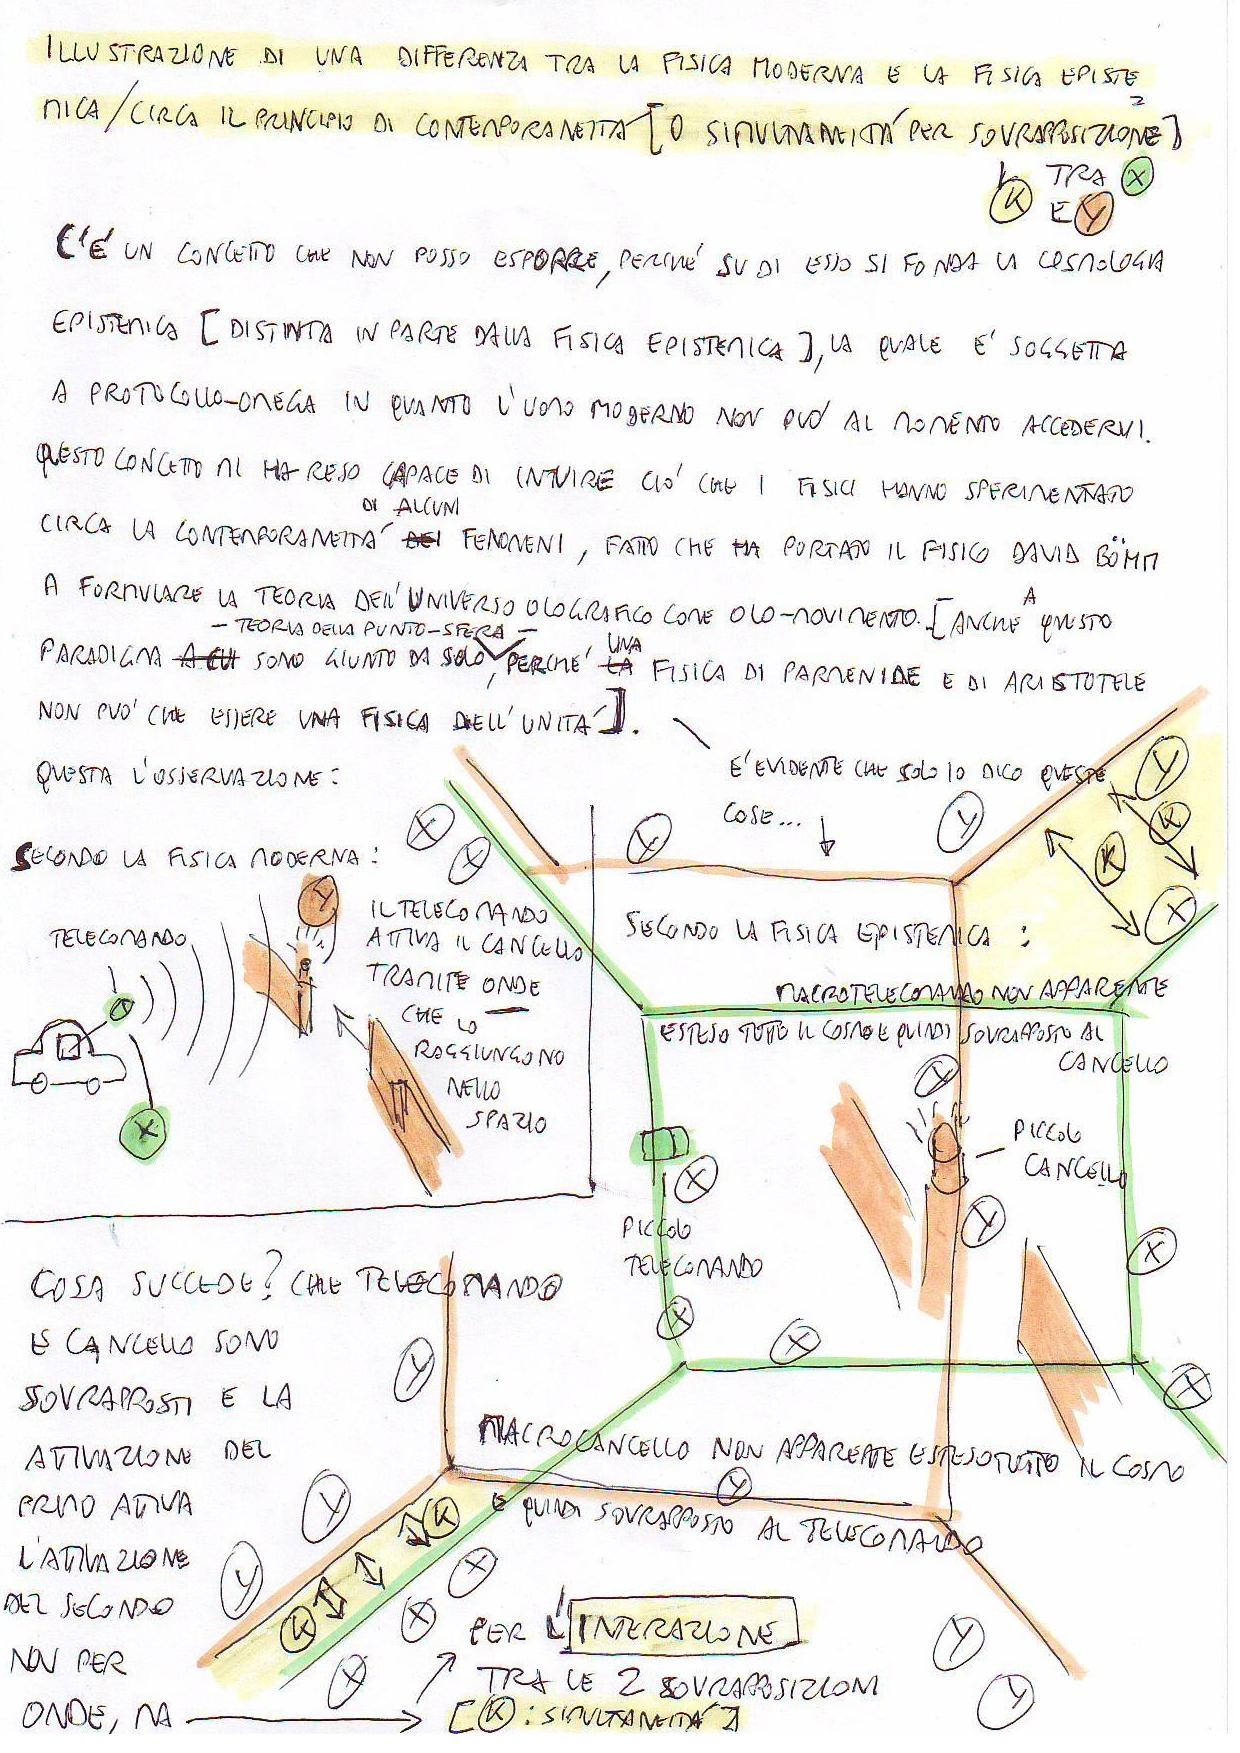 ILLUSTRAZIONE DI UNA DIFFERENZA TRA LA FISICA MODERNA E LA FISICA EPISTE
MICA/CIRCA IL PRINCIPIO DI CONTEMPORANEITÀ [O SIMULTANEITÀ PER SOVRAPPOSIZIONE]
K TRA X
E Y
C'È UN CONCETTO CHE NON POSSO ESPORRE, PERCHÉ SU DI ESSO SI FONDA LA COSMOLOGIA
EPISTEMICA [DISTINTA IN PARTE DALLA FISICA EPISTEMICA], LA QUALE E' SOGGETTA
A PROTOCOLLO-OMEGA IN QUANTO L'UOMO MODERNO NON PUÒ AL MOMENTO ACCEDERVI.
QUESTO CONCETTO MI HA RESO CAPACE DI INTUIRE CIÒ CHE I FISICI HANNO SPERIMENTATO
DI ALCUNI
CIRCA LA CONTEMPORANEITÀ DEI FENOMENI, FATTO CHE HA PORTATO IL FISICO DAVID BÖHM
A FORMULARE LA TEORIA DELL'UNIVERSO OLOGRAFICO COME OLO-MOVIMENTO. [ANCHE A QUESTO
- TEORIA DELLA PUNTO-SFERA -
UNA
PARADIGMA A CUI SONO GIUNTO DA SOLO, PERCHÉ LA FISICA DI PARMENIDE E DI ARISTOTELE
NON PUÒ CHE ESSERE UNA FISICA DELL'UNITÀ].
QUESTA L'OSSERVAZIONE:
E' EVIDENTE CHE SOLO IO DICO QUESTE
COSE...
SECONDO LA FISICA MODERNA:
TELECOMANDO
Y
X
IL TELECOMANDO
ATTIVA IL CANCELLO
TRAMITE ONDE
CHE LO
RAGGIUNGONO
NELLO
SPAZIO
X
X
Y
Y
Y
K
K
X
SECONDO LA FISICA EPISTEMICA:
MACROTELECOMANDO NON APPARENTE
ESTESO TUTTO IL COSMO E QUINDI SOVRAPPOSTO AL
CANCELLO
Y
PICCOLO
CANCELLO
X
Y
PICCOLO
TELECOMANDO
X
X
X
X
COSA SUCCEDE? CHE TELECOMANDO
E CANCELLO SONO
SOVRAPPOSTI E LA
ATTIVAZIONE DEL
PRIMO ATTIVA
L'ATTIVAZIONE
DEL SECONDO
NON PER
ONDE, MA
Y
MACROCANCELLO NON APPARENTE ESTESO TUTTO IL COSMO
Y
E QUINDI SOVRAPPOSTO AL TELECOMANDO
Y
Y
K
K
X
X
X
PER L'INTERAZIONE
TRA LE 2 SOVRAPPOSIZIONI
[K: SIMULTANEITÀ]
Y
Y